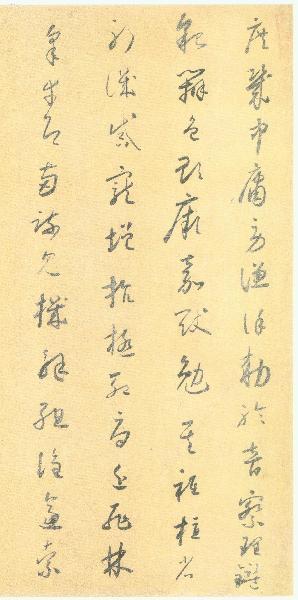 庶幾中庸勞謙謹敕聆音察理鑑
貌辨色貽厥嘉猷勉其祗植省
躬譏誡寵增抗極殆辱近恥林
皋幸即兩疏見機解組誰逼索